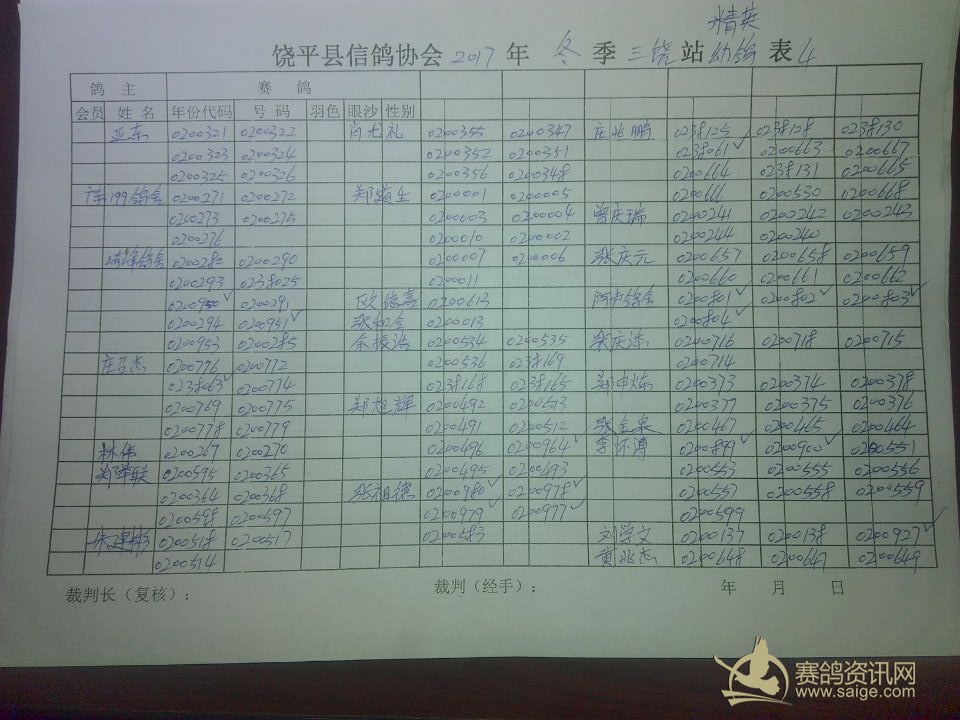 精英
饶平县信鸽协会 2017 年 冬 季 三饶 站 幼鸽 表 4
鸽 主 赛 鸽
会员 姓 名 年份代码 号 码 羽色 眼沙 性别
亚东 0200321 0200322 肖尤礼 0200355 0200347 庄兆鹏 0238125 0238128 0238130
0200323 0200324 0200352 0200351 0238061✓ 0200663 0200667
0200325 0200326 0200356 0200348 0200664 0238131 0200665
199鸽会 0200271 0200272 郑道生 0200001 0200005 0200666 0200530 0200668
0200273 0200275 0200003 0200004 曾庆瑞 0200241 0200242 0200243
0200276 0200010 0200002 0200244 0200240
鸽会 0200282 0200290 0200007 0200006 张庆元 0200657 0200658 0200659
0200293 0238025 0200011 0200660 0200661 0200662
0200950✓ 0200291 欧德嘉 0200613 阿卢鸽会 0200801✓ 0200802✓ 0200803✓
0200294 0200951✓ 张如全 0200013 0200804✓
0200953 0200285 余振浩 0200534 0200535 张庆添 0200716 0200718 0200715
庄召杰 0200776 0200772 0200536 0238169 0200714
0238063✓ 0200774 0238168 0238165 郑中炼 0200373 0200374 0200378
0200769 0200775 郑旭辉 0200492 0200513 0200377 0200375 0200376
0200778 0200779 0200491 0200512 张金泉 0200467 0200465 0200464
林伟 0200267 0200270 0200496 0200964✓ 李怀涛 0200899✓ 0200900✓ 0200551
郑举联 0200595 0200365 0200495 0200493 0200553 0200555 0200556
0200364 0200368 张祖德 0200980✓ 0200978✓ 0200557 0200558 0200559
0200598 0200597 0200979✓ 0200977✓ 0200599
朱建彬 0200518 0200517 0200583 刘学文 0200137 0200138 0200927✓
0200514 黄兆杰 0200648 0200647 0200649
裁判长（复核）： 裁判（经手）： 年 月 日
赛鸽资讯网
www.saige.com